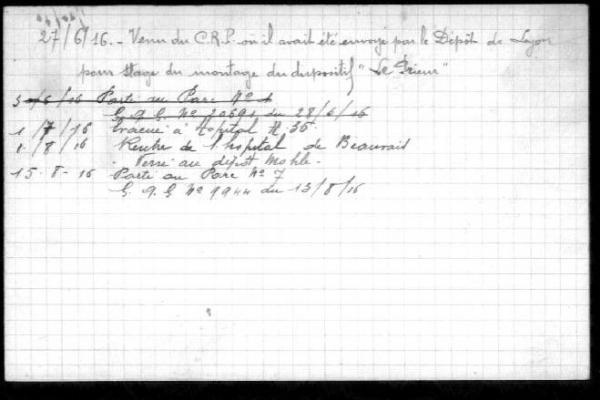 27/6/16. - Venu du C.R.P. où il avait été envoyé par le Dépôt de Lyon
pour stage du montage du dispositif "Le Prieur"
3/6/16 Parti au Parc Nº 1
G.Q.G. Nº 10691 du 28/6/16
1/7/16 Evacué à hopital H. 36.
1/8/16 Rentré de l'hopital de Beauvais
- Versé au dépôt Mobile.
15-8-16 Parti au Parc Nº 7
G.Q.G Nº 9944 du 13/8/16